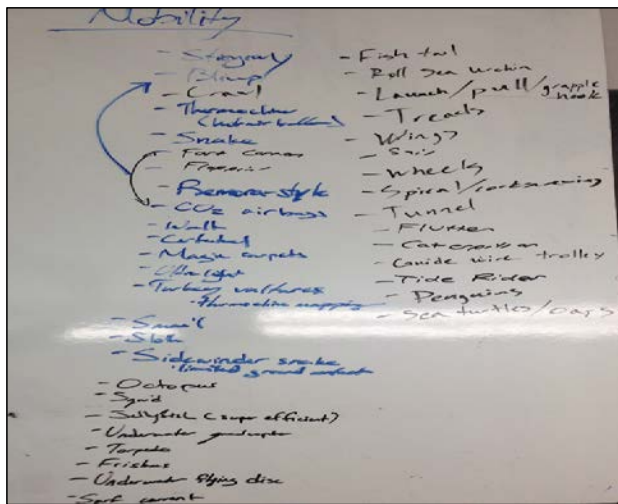 Mobility
- Stingray
- Blimp
- Crawl
- Thermocline
(hot air balloon)
- Snake
- Remora style
- CO2 airbags
- Walk
- Magic carpets
- Turkey vultures
- thermocline mapping
- Snail
- Sloth
- Sidewinder snake
• limited ground contact
- Octopus
- Squid
- Jellyfish (super efficient)
- Underwater quadcopter
- Torpedo
- Frisbee
- Underwater flying disc
- Surf current
- Fish tail
- Roll Sea Urchin
- Launch/pull/grapple hook
- Treads
- Wings
- Sail
- Wheels
- Spiral/corkscrewing
- Tunnel
- Flutter
- Guide wire trolley
- Tide Rider
- Penguins
- Sea turtles/oars